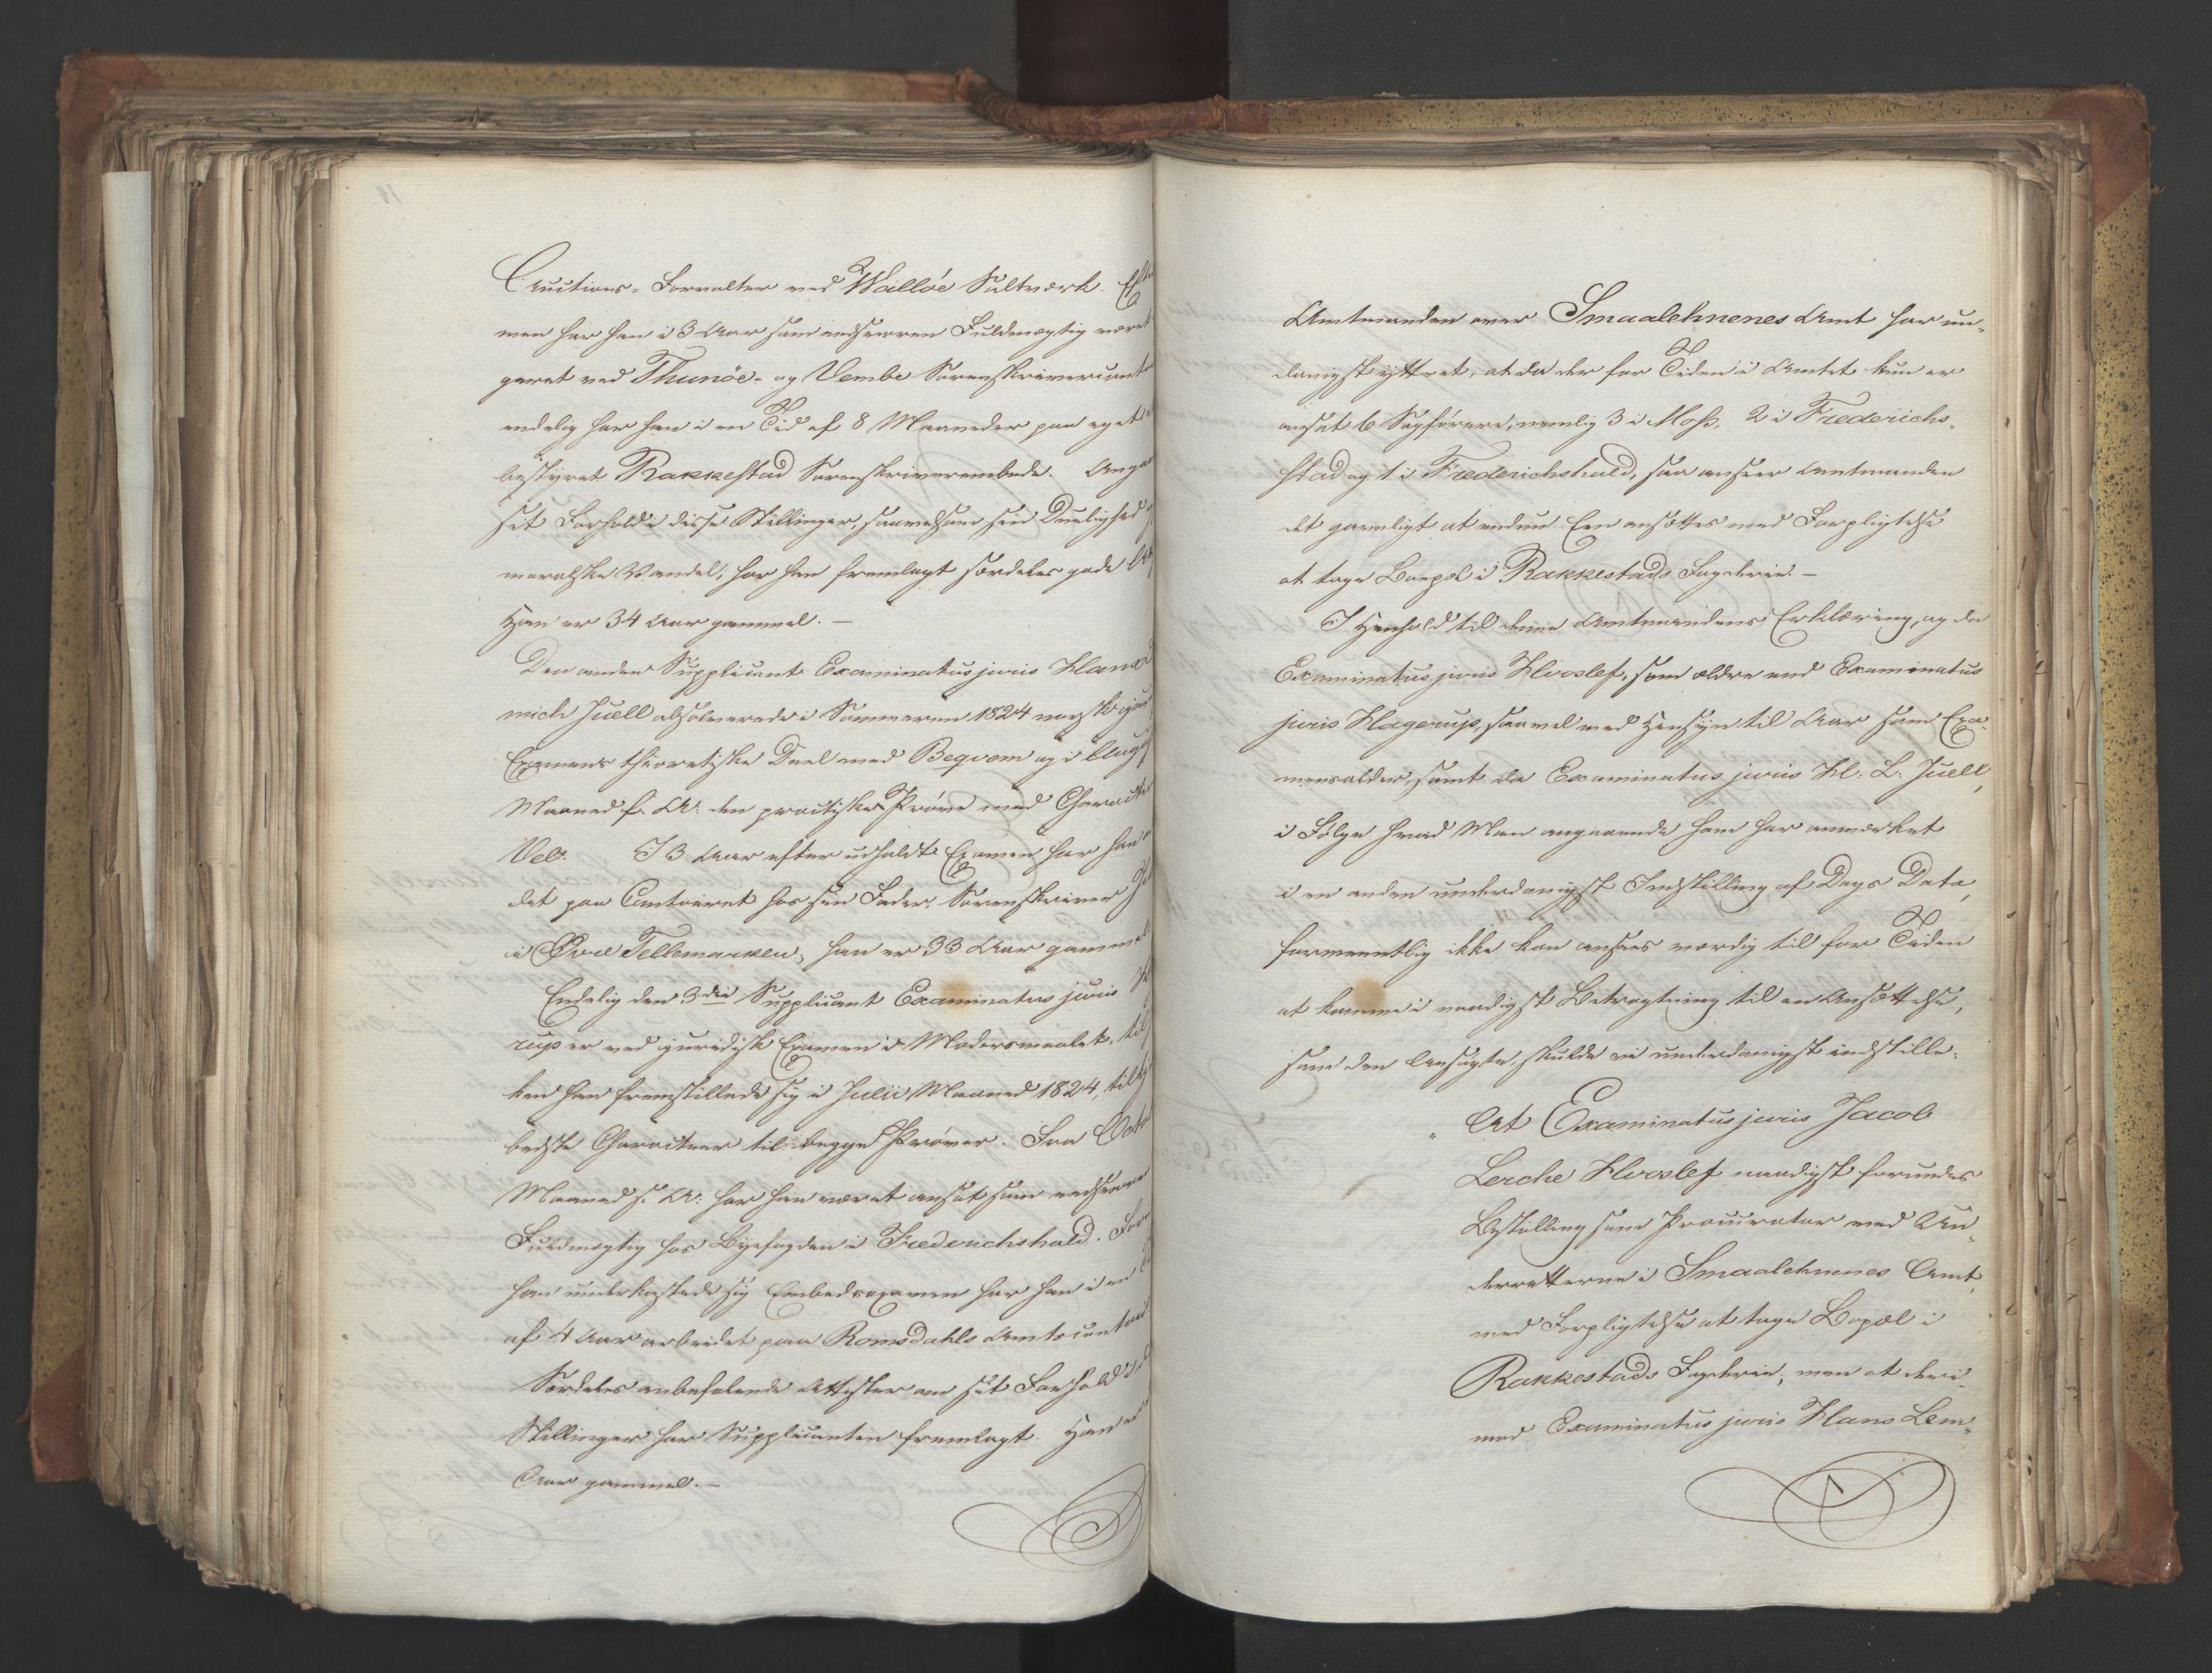 Auctions-Forvalter ved Walløe Saltværk. Efter
men har han i 3 Aar som edsvoren Fuldmægtig været
geret ved Thunøe- og Vembe Sorenskrivercontor
endelig har han i en Tid af 8 Maaneder paa eget
bestyret Rakkestad Sorenskriverembede. Anga
sit Forhold i disse Stillinger, saavelsom sin Duelighed
moralske Vandel, har han fremlagt særdeles gode
Han er 34 Aar gammel. —
Den anden Supplicant Examinatus juris Hans
mich Juell absolverede i Sommeren 1824 norsk jur
Examens theoretiske Deel med Beqvem og i Aug
Maaned s. A. den practiske Prøve med Character
Vel. I 3 Aar efter udholdt Examen har han
det paa Contoiret hos sin Fader, Sorenskriver
i Øvre Tellemarken, han er 33 Aar gammel
Endelig den 3die Supplicant Examinatus juris
rup er ved juridisk Examen i Modersmaalet, til
ken han fremstillede sig i Julii Maaned 1824, til
bedste Characteer til begge Prøver. Fra Octo
Maaned s. A. har han været ansat som edsvoren
Fuldmægtig hos Byefogden i Frederichshald. Før
han underkastede sig Embedsexamen har han i en
af 4 Aar arbeidet paa Romsdahls Amtscontoir
Særdeles anbefalende Attester om sit Forhold i
Stillinger har Supplicanten fremlagt. Han er
Aar gammel. —
Amtmanden over Smaalehnenes Amt har un-
danigst yttret, at da der for Tiden i Amtet kun er
ansat 6 Sagførere, nemlig 3 i Moss, 2 i Frederichs-
stad og 1 i Frederichshald, saa anseer Amtmanden
det gavnligt at endnu Een ansættes med Forpligtelse
at tage Boepæl i Rakkestads Fogderie. —
I Henhold til denne Amtmandens Erklæring, og da
Examinatus juris Hvoslef, som ældre end Examinatus
juris Hagerup, saavel med Hensyn til Aar som Exa-
mensalder, samt da Examinatus juris H. L. Juell,
i Følge hvad Man angaaende ham har anmærket
i en anden underdanigst Indstilling af Dags Dato,
formeentlig ikke kan ansees værdig til for Tiden
at komme i naadigst Betragtning til en Ansættelse,
som den Ansøgte, skulde vi underdanigst indstille:
„At Examinatus juris Jacob
Lerche Hvoslef naadigst forundes
Bestalling som Procurator ved Un-
derretterne i Smaalehnenes Amt,
med Forpligtelse at tage Bopæl i
Rakkestads Fogderie; men at deri-
mod Examinatus juris Hans Lem-